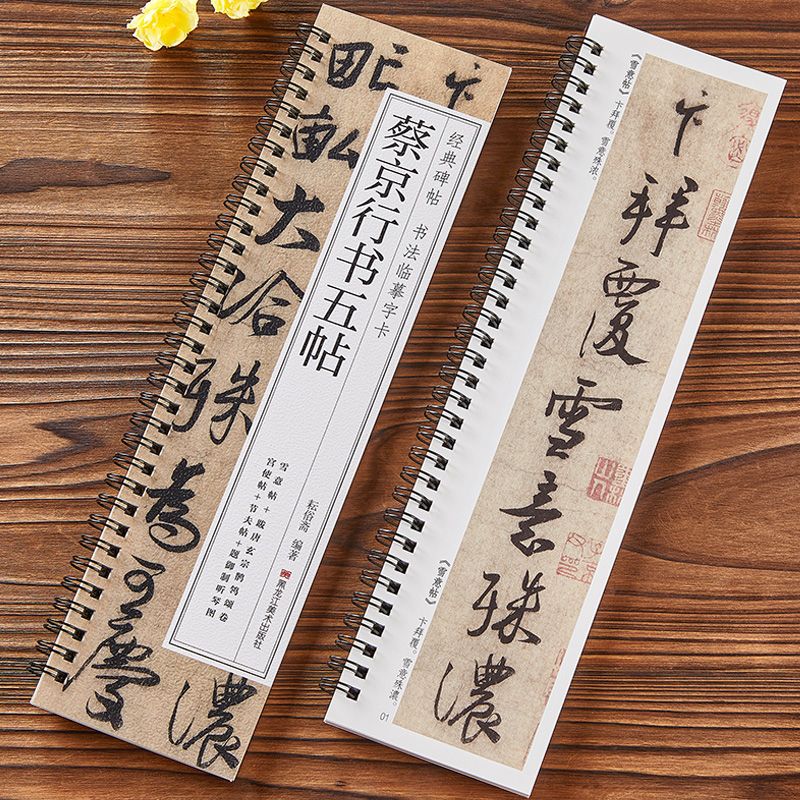 卞
濃
畎畝大洽殊為可慶
经典碑帖 书法临摹字卡
蔡京行书五帖
雪意帖+跋唐玄宗鹡鸰颂卷
宫使帖+节夫帖+题御制听琴图
耘俗斋 编著
黑龙江美术出版社
卞拜覆雪意殊濃
《雪意帖》 卞拜覆。雪意殊浓。
《雪意帖》 卞拜覆。雪意殊濃。
01